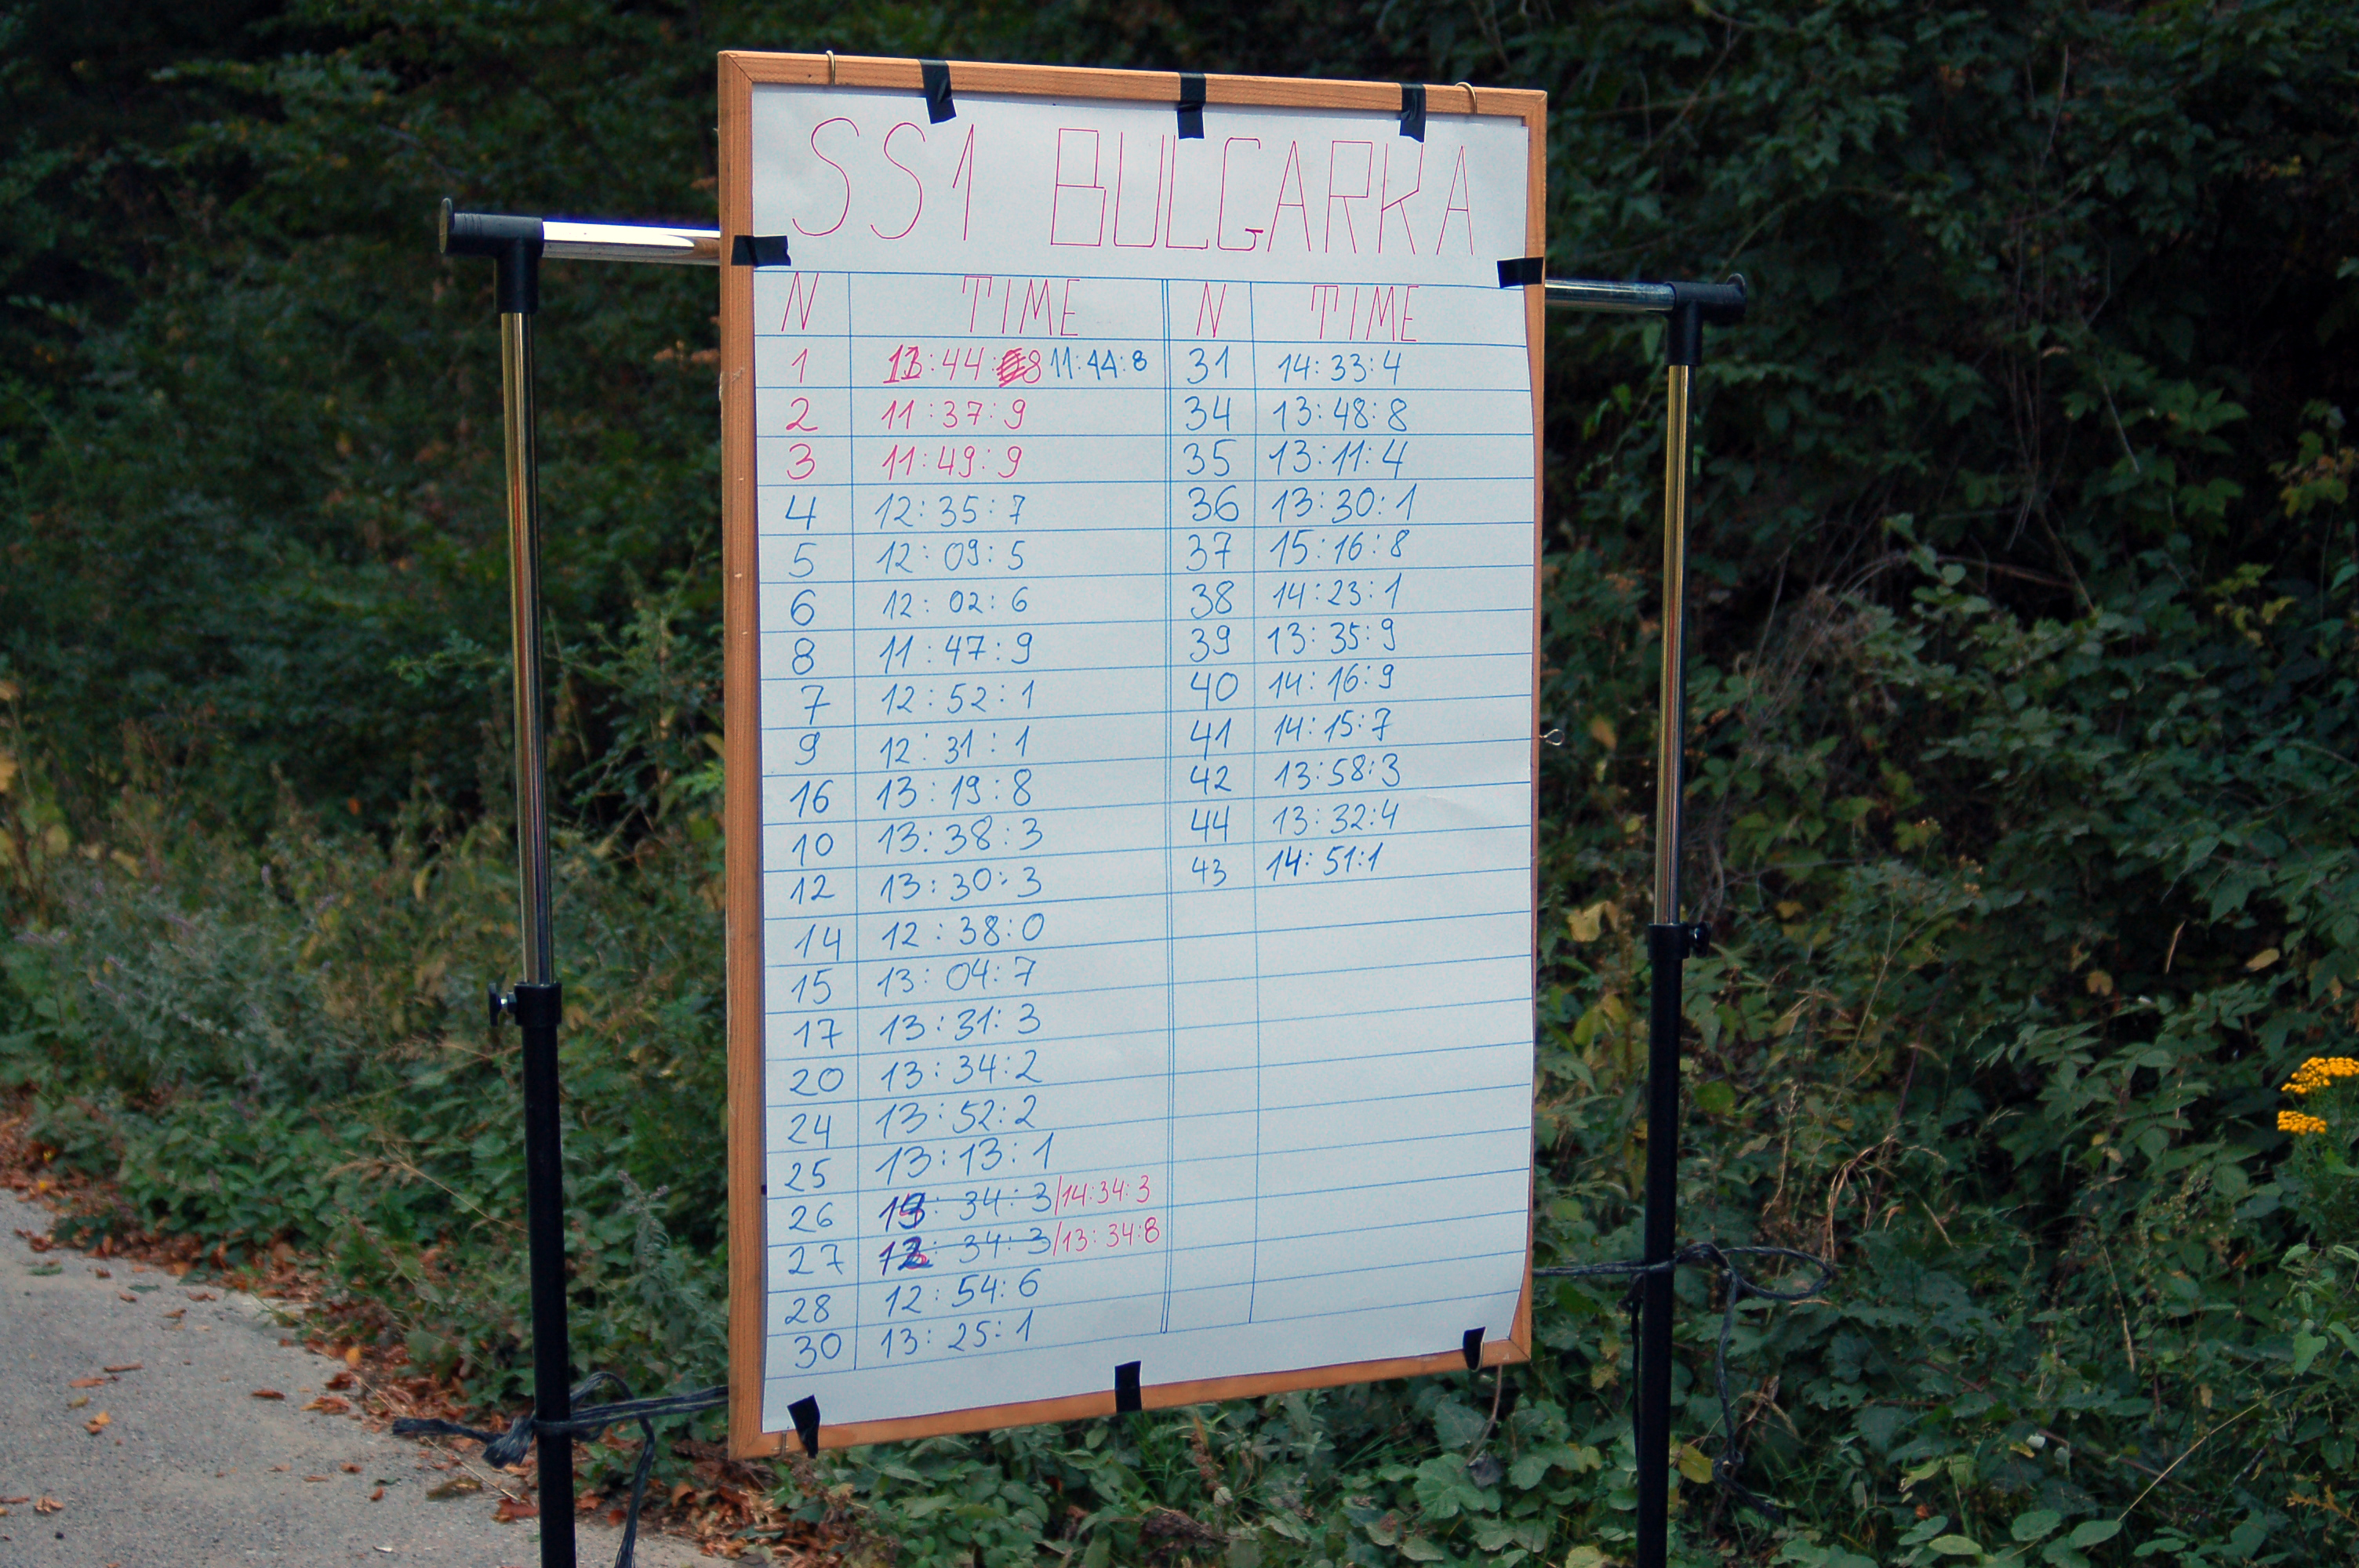 SS1 BULGARKA
N TIME N TIME
1 11:44:8 11:44:8 31 14:33:4
2 11:37:9 34 13:48:8
3 11:49:9 35 13:11:4
4 12:35:7 36 13:30:1
5 12:09:5 37 15:16:8
6 12:02:6 38 14:23:1
8 11:47:9 39 13:35:9
7 12:52:1 40 14:16:9
9 12:31:1 41 14:15:7
16 13:19:8 42 13:58:3
10 13:38:3 44 13:32:4
12 13:30:3 43 14:51:1
14 12:38:0
15 13:04:7
17 13:31:3
20 13:34:2
24 13:52:2
25 13:13:1
26 34:3/14:34:3
27 34:3/13:34:8
28 12:54:6
30 13:25:1